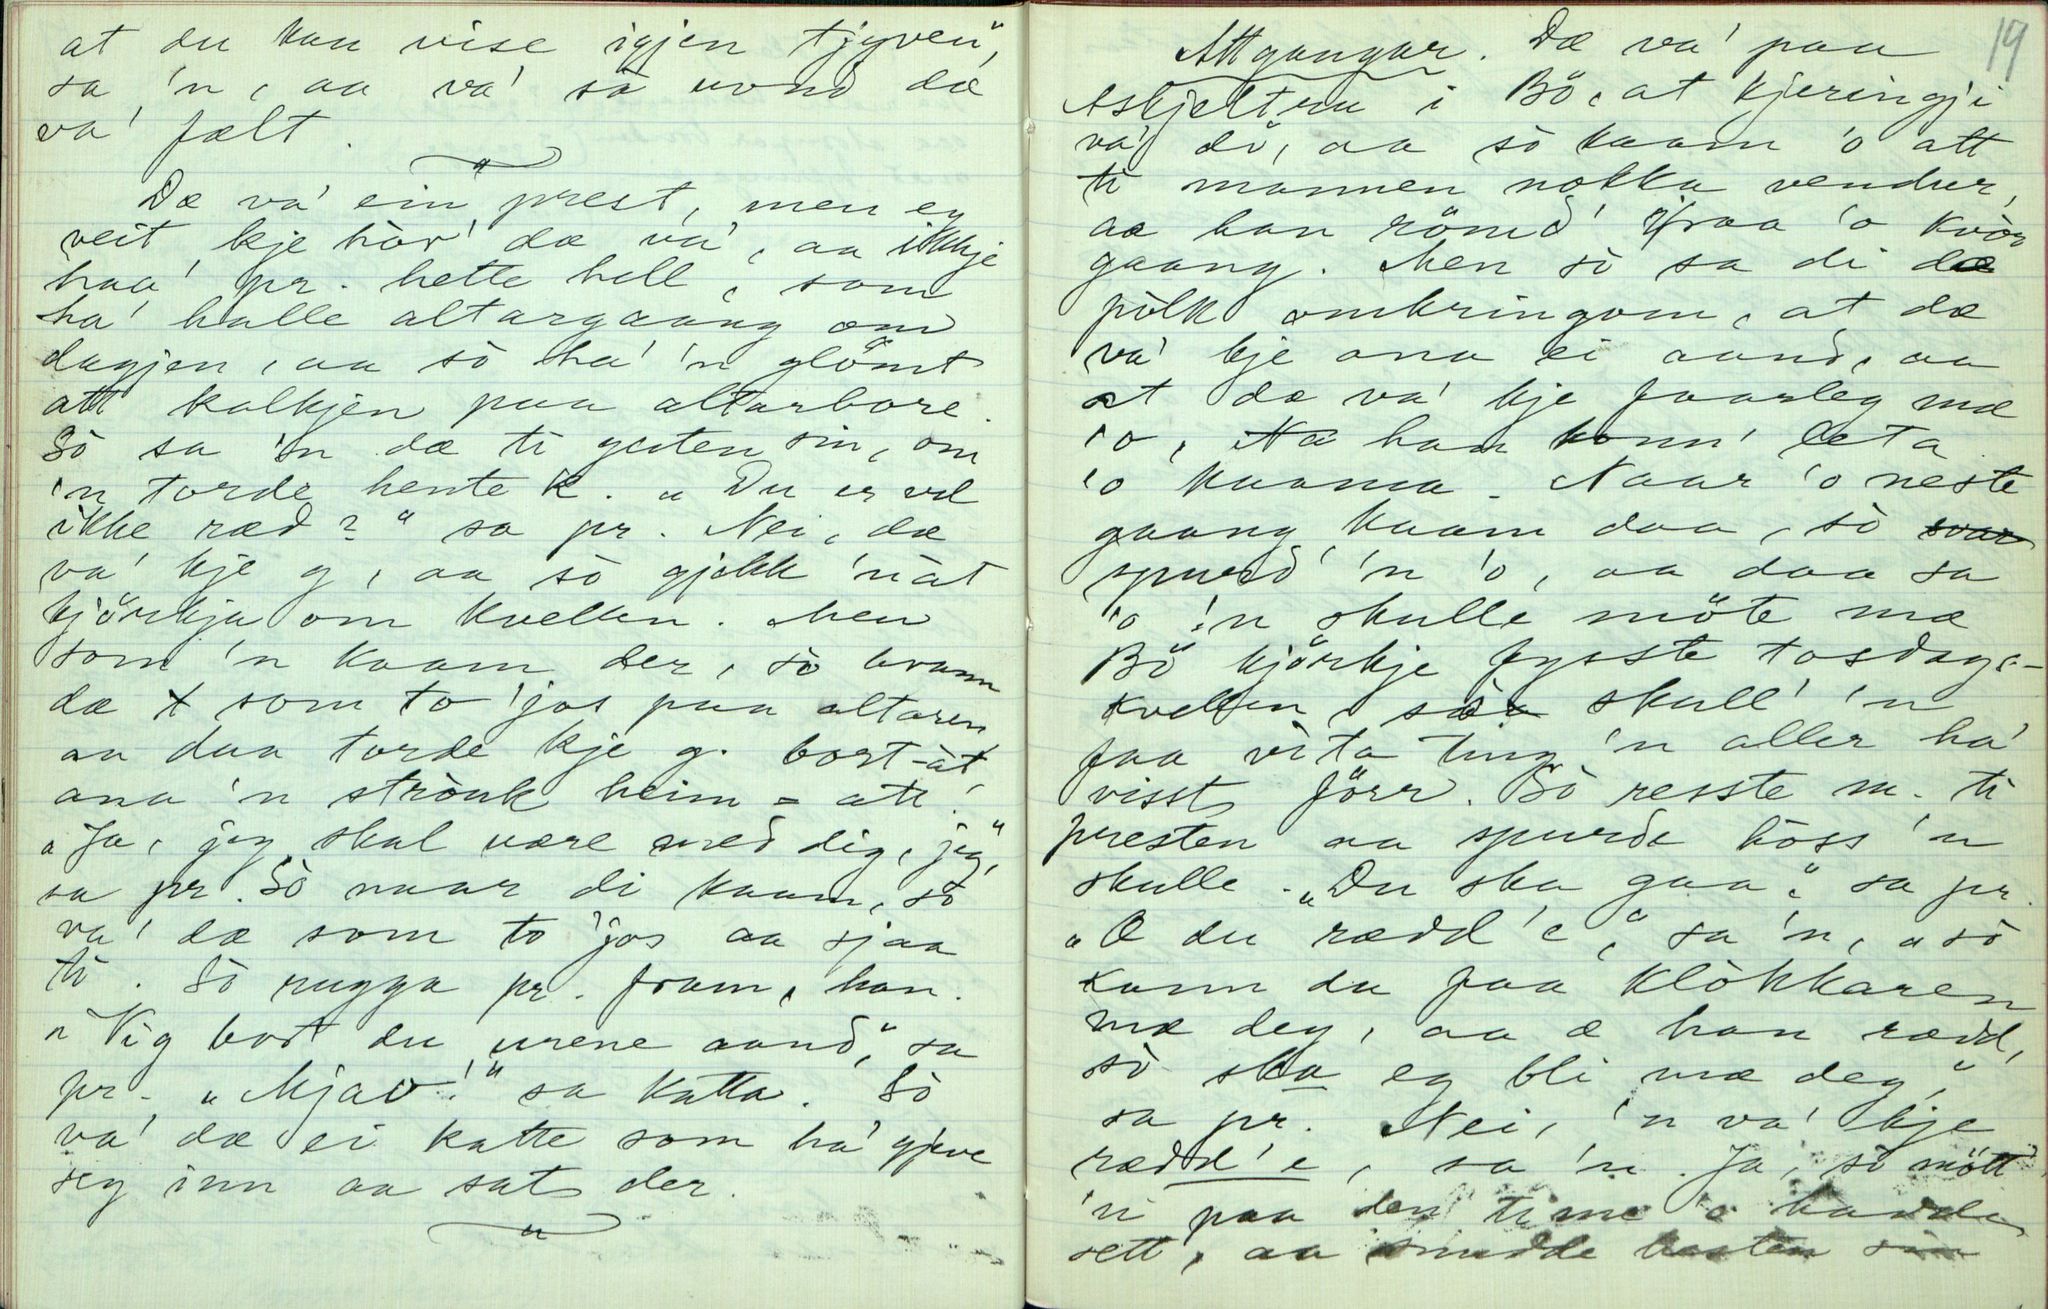 at du kan vise igjen tjyven",
sa 'n, aa va' så vond dæ
va' fælt.
Dæ va' ein prest, men eg
veit kje hòr' dæ va', aa ikkje
haa' pr. hette hell, som
ha' halle altargaang om
dagjen, aa sò ha' 'n glömt
att kalkjen paa altarbore.
Sò sa 'n dæ ti guten sin, om
'n torde hente k. „Du er vel
ikke ræd?" sa pr. Nei, dæ
va' kje g, aa sò gjekk 'n åt
kjörkja om kvellen. Men
som 'n kaam der, sò brann
dæ som to 'jos paa altaren,
aa daa torde kje g. bort-åt,
ana 'n strònk heim-att.
„Ja, jeg skal være med dig, jeg",
sa pr. Sò naar di kaam, sò
va' dæ som to 'jos aa sjaa
ti. Sò rugga pr. fram, han.
„Vig bort du urene aand," sa
pr. „Mjav!" sa katta. Sò
va' dæ ei katte som ha' gjeve
seg inn aa sat der.
19
Attgangar. Dæ va' paa
Askjeltun i Bö, at kjeringji
va' dö, aa sò kaam 'o att
ti mannen nokka vendur,
aa han römd' ifraa 'o kvòr
gaang. Men sò sa di dæ
fòlk omkringom, at dæ
va' kje ana ei aand, aa
at dæ va' kje faarleg mæ
'o, Nå han konn' leta
'o kaama. Naar 'o neste
gaang kaam daa, sò svar
spurd' 'n 'o, aa daa sa
'o 'n skulle möte mæ
Bö kjörkje fysste tosdags-
kvellen, så skull' 'n
faa vita ting 'n aller ha'
visst förr. Sò resste m. ti
presten aa spurde hòss 'n
skulle. „Du ska gaa," sa pr.
„Æ du rædd'e," sa 'n, „sò
kann du faa klòkkaren
mæ deg, aa æ han rædd,
sò ska eg bli mæ deg,"
sa pr. Nei, 'n va' kje
rædd'e, sa 'n. Ja, sò mött'
'n paa den time 'o hadde
sett, aa snudde hesten sin